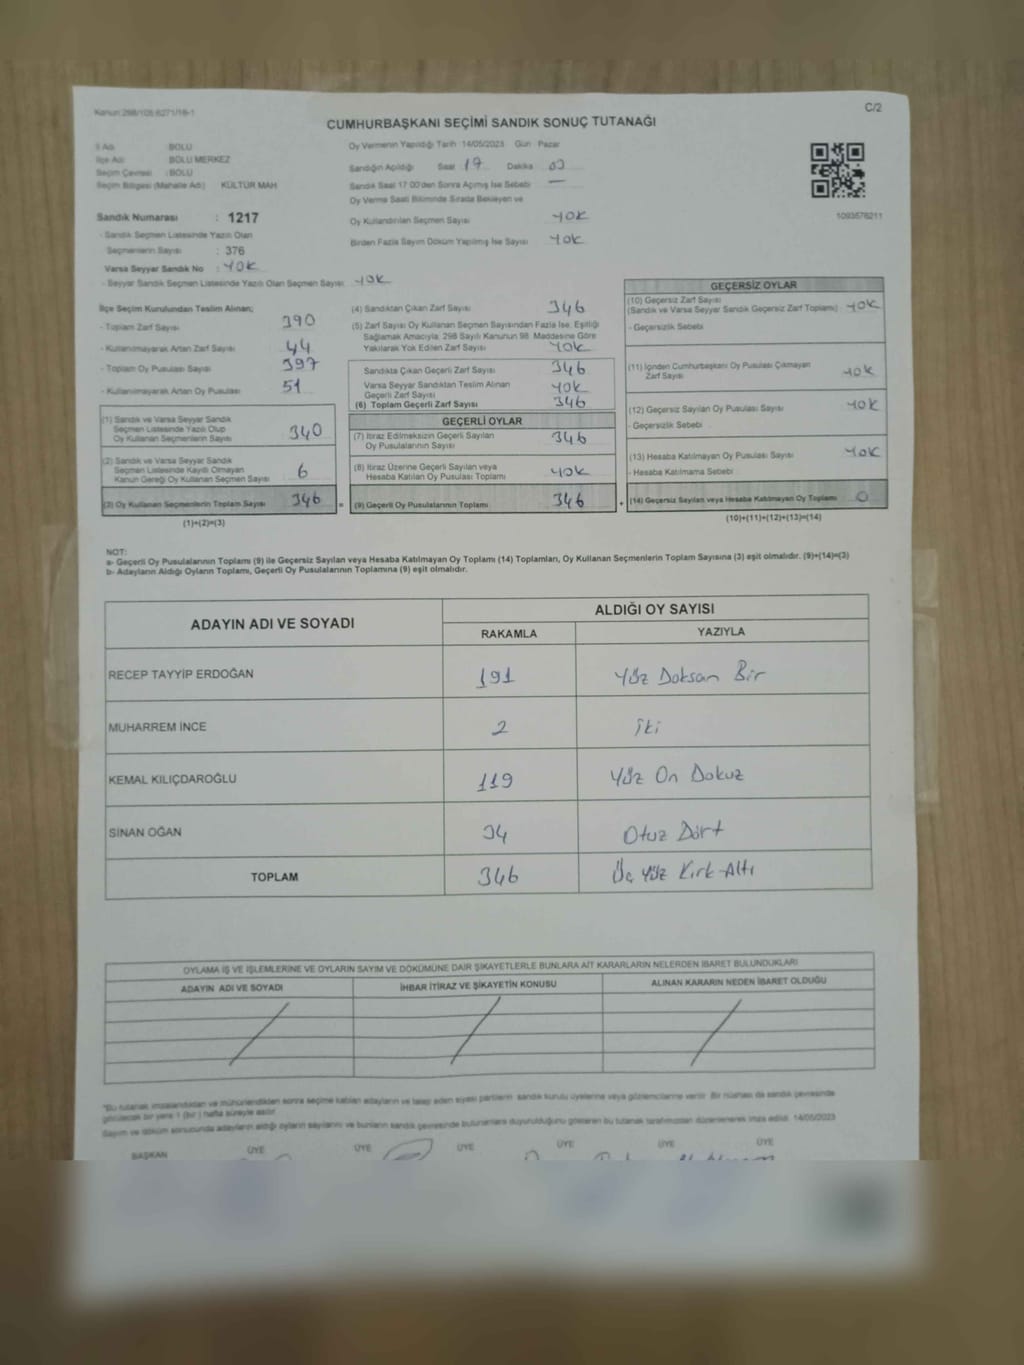 Kanun:298/105:6271/18-1
C/2
CUMHURBAŞKANI SEÇİMİ SANDIK SONUÇ TUTANAĞI
İl Adı BOLU
İlçe Adı BOLU MERKEZ
Seçim Çevresi : BOLU
Seçim Bölgesi (Mahalle Adı) KÜLTÜR MAH
Sandık Numarası : 1217
- Sandık Seçmen Listesinde Yazılı Olan
Seçmenlerin Sayısı : 376
Varsa Seyyar Sandık No : YOK
- Seyyar Sandık Seçmen Listesinde Yazılı Olan Seçmen Sayısı: YOK
Oy Vermenin Yapıldığı Tarih :14/05/2023 Gün : Pazar
Sandığın Açıldığı Saat 17 Dakika
Sandık Saat 17:00'den Sonra Açılmış İse Sebebi —
Oy Verme Saati Bitiminde Sırada Bekleyen ve
Oy Kullandırılan Seçmen Sayısı YOK
Birden Fazla Sayım Döküm Yapılmış İse Sayısı YOK
1093576211
İlçe Seçim Kurulundan Teslim Alınan;
- Toplam Zarf Sayısı 390
- Kullanılmayarak Artan Zarf Sayısı 44
- Toplam Oy Pusulası Sayısı 397
- Kullanılmayarak Artan Oy Pusulası 51
(1) Sandık ve Varsa Seyyar Sandık
Seçmen Listesinde Yazılı Olup
Oy Kullanan Seçmenlerin Sayısı 340
(2) Sandık ve Varsa Seyyar Sandık
Seçmen Listesinde Kayıtlı Olmayan
Kanun Gereği Oy Kullanan Seçmen Sayısı 6
(3) Oy Kullanan Seçmenlerin Toplam Sayısı 346 =
(1)+(2)=(3)
(4) Sandıktan Çıkan Zarf Sayısı 346
(5) Zarf Sayısı Oy Kullanan Seçmen Sayısından Fazla İse, Eşitliği
Sağlamak Amacıyla; 298 Sayılı Kanunun 98. Maddesine Göre
Yakılarak Yok Edilen Zarf Sayısı YOK
Sandıkta Çıkan Geçerli Zarf Sayısı 346
Varsa Seyyar Sandıktan Teslim Alınan
Geçerli Zarf Sayısı YOK
(6) Toplam Geçerli Zarf Sayısı 346
GEÇERLİ OYLAR
(7) İtiraz Edilmeksizin Geçerli Sayılan
Oy Pusulalarının Sayısı 346
(8) İtiraz Üzerine Geçerli Sayılan veya
Hesaba Katılan Oy Pusulası Toplamı YOK
(9) Geçerli Oy Pusulalarının Toplamı 346 +
GEÇERSİZ OYLAR
(10) Geçersiz Zarf Sayısı
(Sandık ve Varsa Seyyar Sandık Geçersiz Zarf Toplamı) YOK
- Geçersizlik Sebebi
(11) İçinden Cumhurbaşkanı Oy Pusulası Çıkmayan
Zarf Sayısı YOK
(12) Geçersiz Sayılan Oy Pusulası Sayısı YOK
- Geçersizlik Sebebi
(13) Hesaba Katılmayan Oy Pusulası Sayısı YOK
- Hesaba Katılmama Sebebi
(14) Geçersiz Sayılan veya Hesaba Katılmayan Oy Toplamı 0
(10)+(11)+(12)+(13)=(14)
NOT:
a- Geçerli Oy Pusulalarının Toplamı (9) ile Geçersiz Sayılan veya Hesaba Katılmayan Oy Toplamı (14) Toplamları, Oy Kullanan Seçmenlerin Toplam Sayısına (3) eşit olmalıdır. (9)+(14)=(3)
b- Adayların Aldığı Oyların Toplamı, Geçerli Oy Pusulalarının Toplamına (9) eşit olmalıdır.
ADAYIN ADI VE SOYADI ALDIĞI OY SAYISI
RAKAMLA YAZIYLA
RECEP TAYYİP ERDOĞAN 191 Yüz Doksan Bir
MUHARREM İNCE 2 İki
KEMAL KILIÇDAROĞLU 119 Yüz On Dokuz
SİNAN OĞAN 34 Otuz Dört
TOPLAM 346 Üç Yüz Kırk-Altı
OYLAMA İŞ VE İŞLEMLERİNE VE OYLARIN SAYIM VE DÖKÜMÜNE DAİR ŞİKAYETLERLE BUNLARA AİT KARARLARIN NELERDEN İBARET BULUNDUKLARI
ADAYIN ADI VE SOYADI İHBAR İTİRAZ VE ŞİKAYETİN KONUSU ALINAN KARARIN NEDEN İBARET OLDUĞU
"Bu tutanak imzalandıktan ve mühürlendikten sonra seçime katılan adayların ve talep eden siyasi partilerin sandık kurulu üyelerine veya gözlemcilerine verilir. Bir nüshası da sandık çevresinde
görülecek bir yere 1 (bir) hafta süreyle asılır.
Sayım ve döküm sonucunda adayların aldığı oyların sayılarını ve bunların sandık çevresinde bulunanlara duyurulduğunu gösteren bu tutanak tarafımızdan düzenlenerek imza edildi. 14/05/2023
BAŞKAN ÜYE ÜYE ÜYE ÜYE ÜYE ÜYE